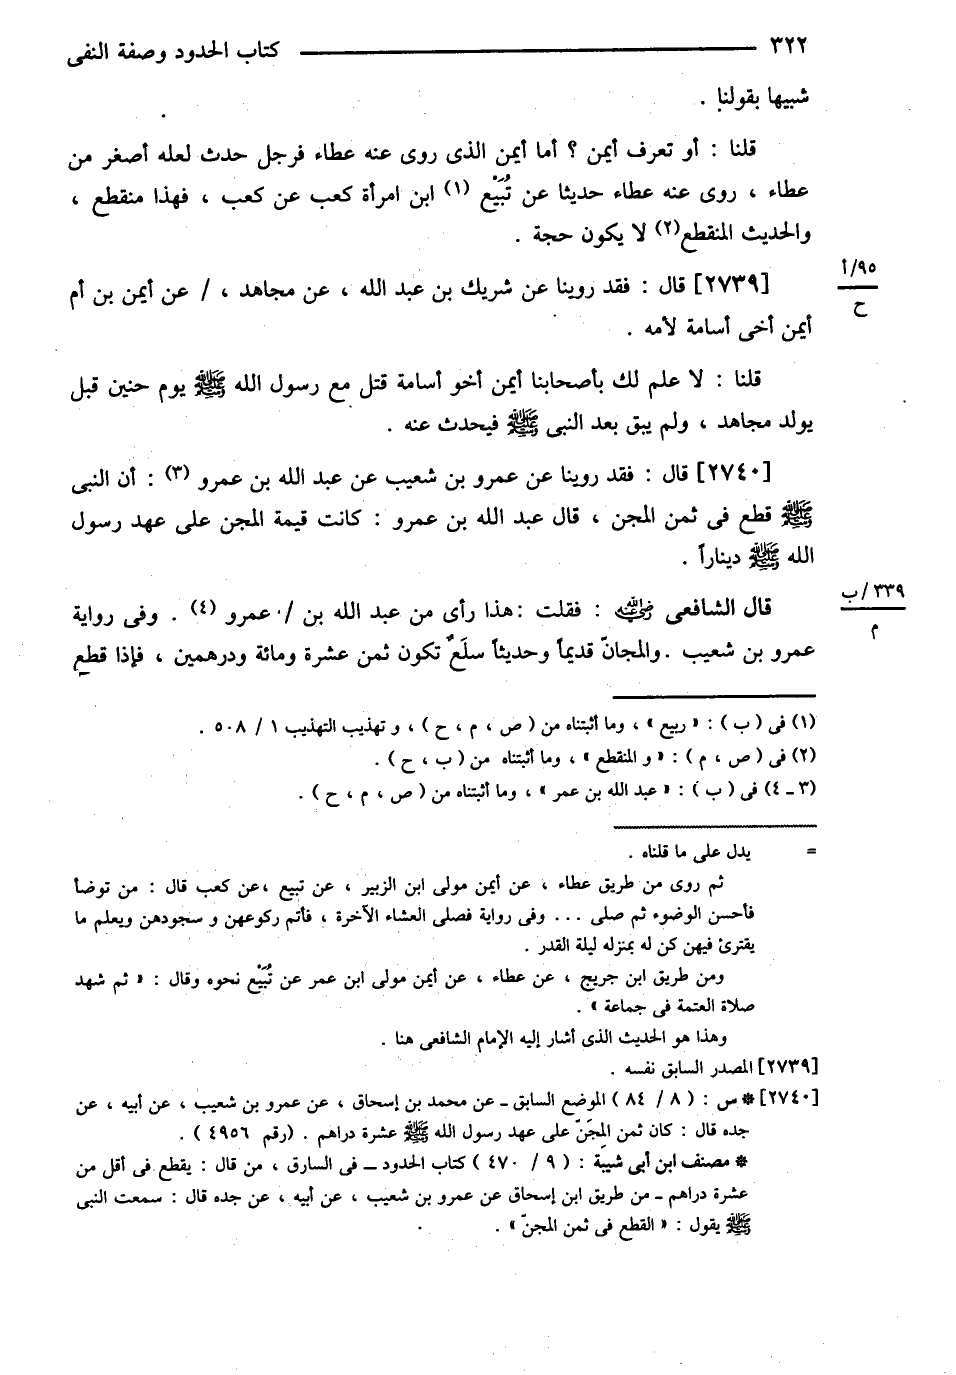 ٣٢٢ كتاب الحدود وصفة النفى
شبيها بقولنا .
قلنا : أو تعرف أيمن ؟ أما أيمن الذى روى عنه عطاء فرجل حدث لعله أصغر من
عطاء ، روى عنه عطاء حديثا عن تُبَيْع (١) ابن امرأة كعب عن كعب ، فهذا منقطع ،
والحديث المنقطع(٢) لا يكون حجة .
٩٥/أ
ح
[٢٧٣٩] قال : فقد روينا عن شريك بن عبد الله ، عن مجاهد ، / عن أيمن بن أم
أيمن أخى أسامة لأمه .
قلنا : لا علم لك بأصحابنا أيمن أخو أسامة قتل مع رسول الله ﷺ يوم حنين قبل
يولد مجاهد ، ولم يبق بعد النبى ﷺ فيحدث عنه .
[٢٧٤٠] قال : فقد روينا عن عمرو بن شعيب عن عبد الله بن عمرو (٣) : أن النبى
ﷺ قطع فى ثمن المجن ، قال عبد الله بن عمرو : كانت قيمة المجن على عهد رسول
الله ﷺ ديناراً .
٣٣٩/ب
م
قال الشافعى رضي الله عنه : فقلت :هذا رأى من عبد الله بن / عمرو (٤) . وفى رواية
عمرو بن شعيب .والمجانّ قديماً وحديثاً سلَعٌ تكون ثمن عشرة ومائة ودرهمين ، فإذا قطع
(١) فى ( ب ) : « ربيع » ، وما أثبتناه من ( ص ، م ، ح ) ، و تهذيب التهذيب ١ / ٥٠٨ .
(٢) فى ( ص ، م ) : « و المنقطع » ، وما أثبتناه من ( ب ، ح ) .
(٣ ـ ٤) فى ( ب ) : « عبد الله بن عمر » ، وما أثبتناه من ( ص ، م ، ح ) .
= يدل على ما قلناه .
ثم روى من طريق عطاء ، عن أيمن مولى ابن الزبير ، عن تبيع ،عن كعب قال : من توضأ
فأحسن الوضوء ثم صلى ... وفى رواية فصلى العشاء الآخرة ، فأتم ركوعهن و سجودهن ويعلم ما
يقترئ فيهن كن له بمنزله ليلة القدر .
ومن طريق ابن جريج ، عن عطاء ، عن أيمن مولى ابن عمر عن تُبَيْع نحوه وقال : « ثم شهد
صلاة العتمة فى جماعة » .
وهذا هو الحديث الذى أشار إليه الإمام الشافعى هنا .
[٢٧٣٩] المصدر السابق نفسه .
[٢٧٤٠] * س : ( ٨ / ٨٤ ) الموضع السابق ـ عن محمد بن إسحاق ، عن عمرو بن شعيب ، عن أبيه ، عن
جده قال : كان ثمن المِجَنّ على عهد رسول الله ﷺ عشرة دراهم . (رقم ٤٩٥٦ ) .
* مصنف ابن أبى شيبة : ( ٩ / ٤٧٠ ) كتاب الحدود ــ فى السارق ، من قال : يقطع فى أقل من
عشرة دراهم ـ من طريق ابن إسحاق عن عمرو بن شعيب ، عن أبيه ، عن جده قال : سمعت النبى
ﷺ يقول : « القطع فى ثمن المجنّ » .